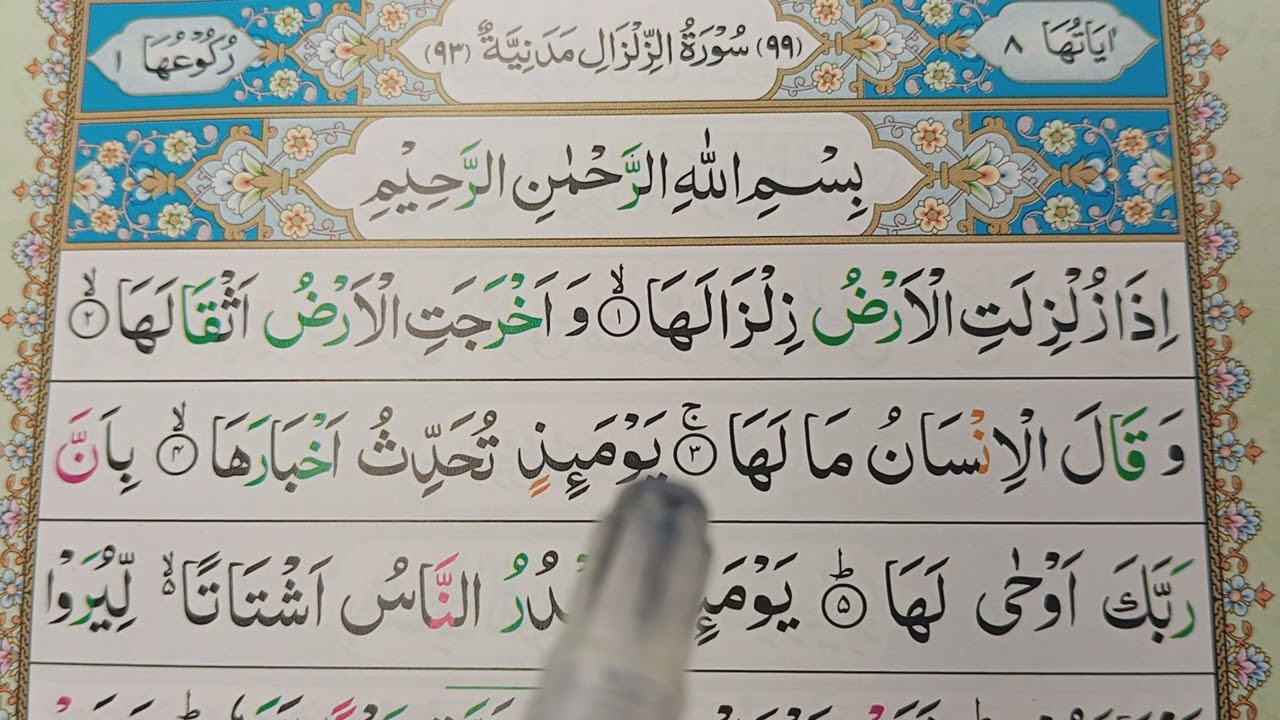 اٰيَاتُهَا ٨ (٩٩) سُوْرَةُ الزِّلْزَالِ مَدَنِيَّةٌ (٩٣) رُكُوْعُهَا ١
بِسْمِ اللّٰهِ الرَّحْمٰنِ الرَّحِيْمِ
اِذَا زُلْزِلَتِ الْاَرْضُ زِلْزَالَهَا ۙ﴿١﴾ وَ اَخْرَجَتِ الْاَرْضُ اَثْقَالَهَا ۙ﴿٢﴾
وَ قَالَ الْاِنْسَانُ مَا لَهَا ۚ﴿٣﴾ يَوْمَىِٕذٍ تُحَدِّثُ اَخْبَارَهَا ۙ﴿٤﴾ بِاَنَّ
رَبَّكَ اَوْحٰى لَهَا ؕ﴿٥﴾ النَّاسُ اَشْتَاتًا ۙ۬ لِّيُرَوْا